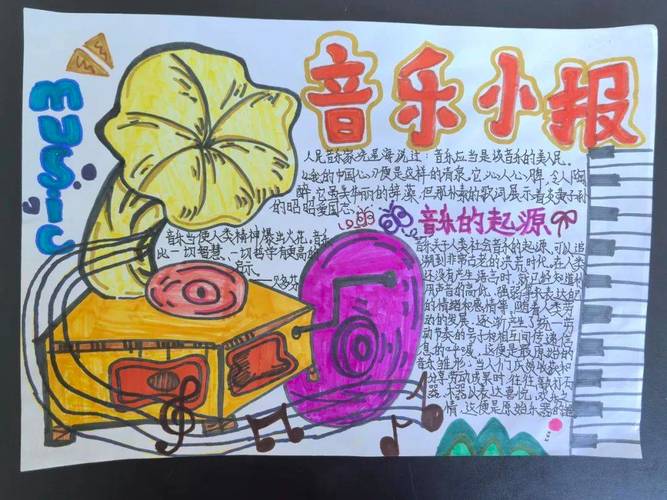 音乐小报
MUSIC
人民音乐家冼星海说过：音乐应当是该音乐的美人民。
《我的中国心》便是这样的清泉。它沁人心脾，令人陶
醉。它虽无华丽的辞藻，但那朴素的歌词展示着炎黄子孙
的昭昭爱国志。
音乐当使人类精神爆出火花，音乐
比一切智慧、一切哲学有更高的
启示。
——贝多芬
音乐的起源
音乐关于人类社会音乐的起源，可以追
溯到非常古老的洪荒时代。在人类
还没有产生语言时，就已经知道利
用声音的高低、强弱等来表达自己
的情绪和感情等。随着人类劳
动的发展，逐渐产生了统一劳
动节奏的号子和相互间传递信
息的呼喊，这便是最原始的
音乐雏形。当人们庆贺收获和
分享劳动成果时，往往敲打石
器、木器以表达喜悦、欢乐之
情，这便是原始乐器的雏